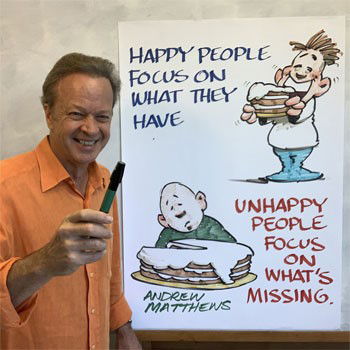 HAPPY PEOPLE
FOCUS ON
WHAT THEY
HAVE
UNHAPPY
PEOPLE
FOCUS
ON
WHAT'S
MISSING.
ANDREW
MATTHEWS